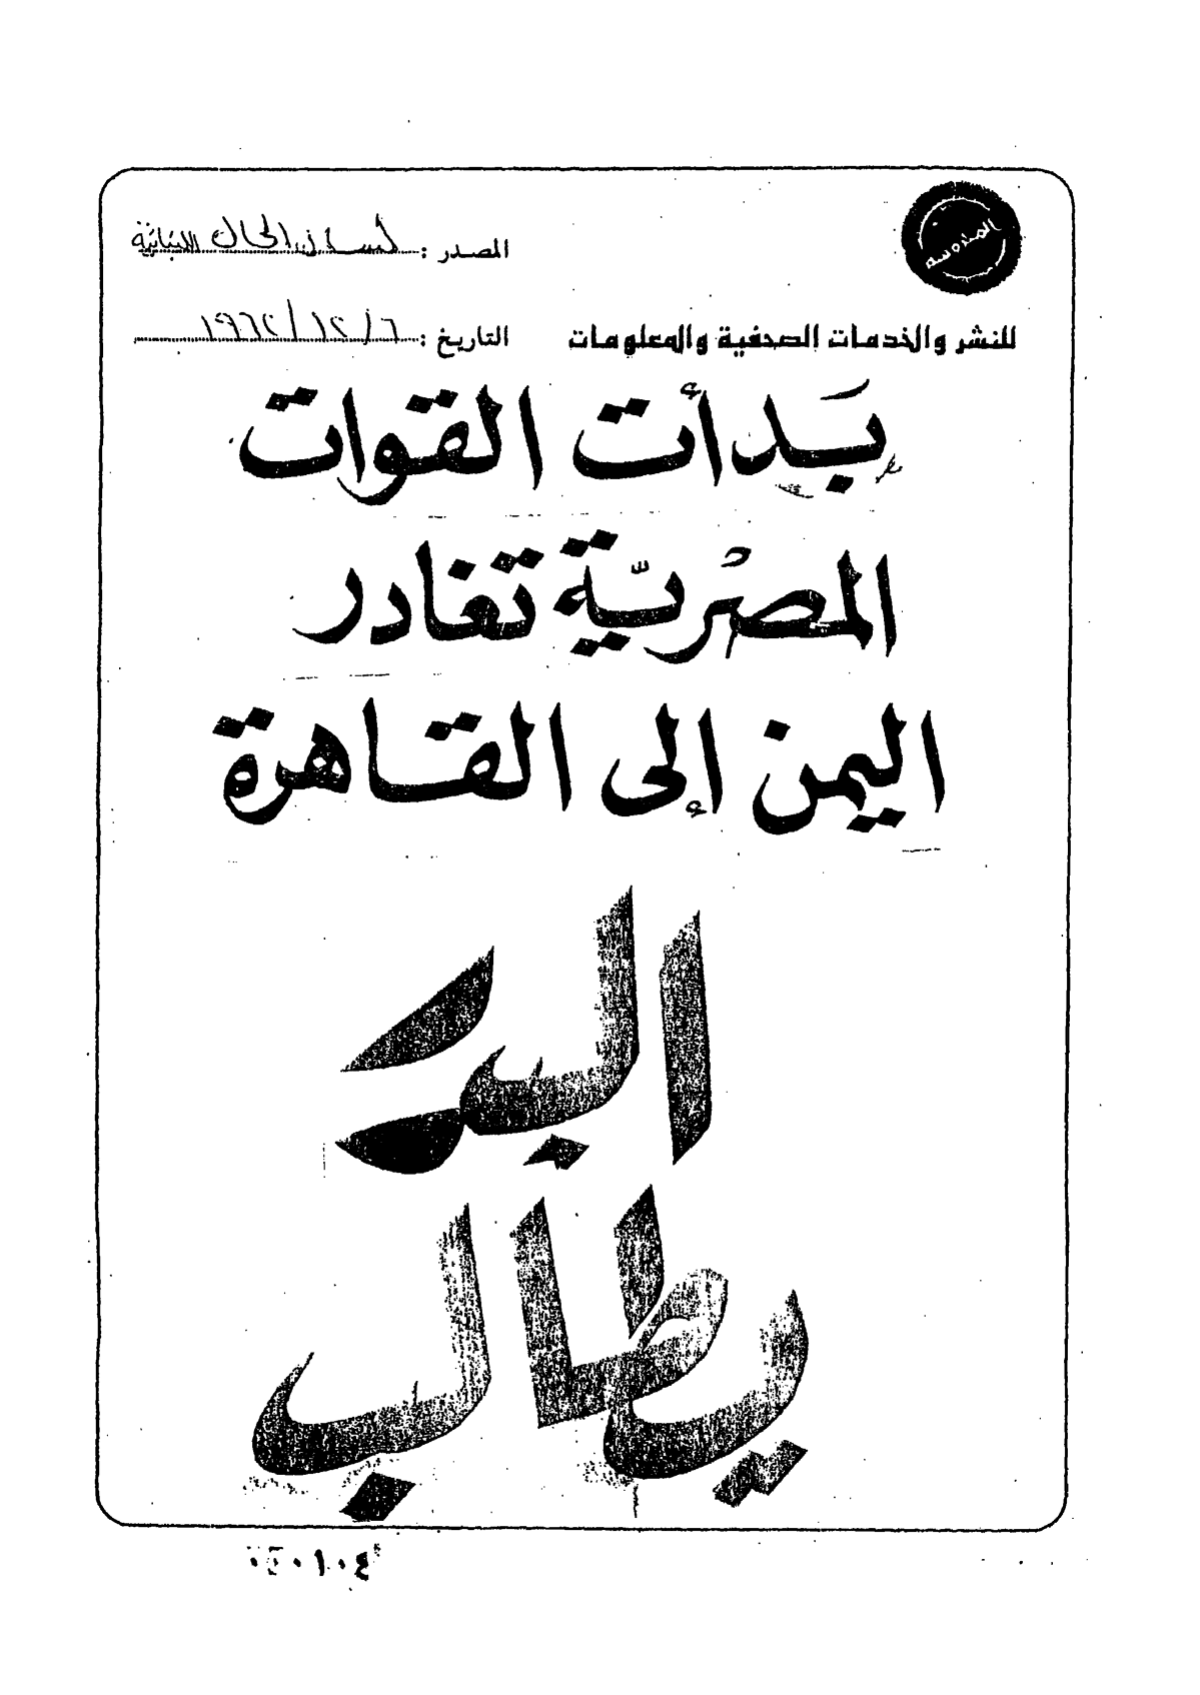 المدوسة
للنشر والخدمات الصحفية والمعلومات
المصدر : لسان الحال اللبنانية
التاريخ : ٦/١٢/١٩٦٢
بَدأت القوات
المصْريّة تغادر
اليمن إلى القاهرة
البدر
يطالب